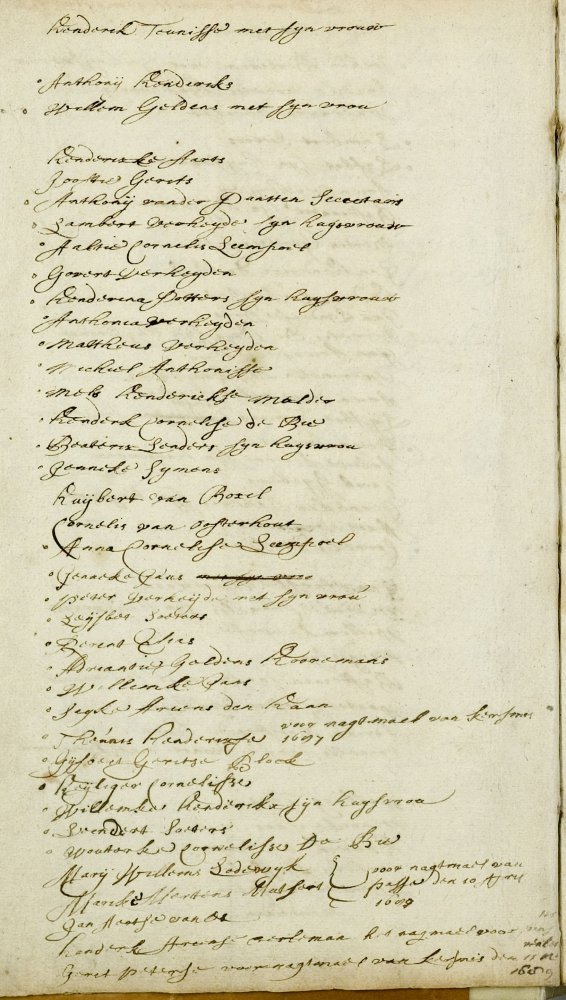 Henderick Teunisse met syn vrouw
Anthonij Hendericks
Willem Geldens met syn vrou
Henderieke Aarts
Joostie Gerits
Anthonij vander Santten Secretaris
Lambert Verheyde syn huysvrouw
Aaltie Cornelis Leempoel
Govert Verheyden
Henderina Potters syn huysvrouw
Anthonia Verheyden
Mattheus Verheyden
Michiel Anthonisse
Mels Henderickse Mulder
Henderk Cornelisse de Bie
Beateris Senders syn huysvrou
Jenneke Symens
Huijbert van Boxel
Cornelis van Oosterhout
Anna Cornelisse Leempoel
Jenneke Jans met syn vrou
Peter Verheijde met syn vrou
Lijsbet
Berent Elias
Adriantie Geldens Kooremans
Willemke Jans
Seyke Ariens den Haan
Theunis Henderickse voor nagtmael van kersmis
1687
Gijsbert Geritse Block
Heyliger Cornelisse
Willemke Hendericks syn huysvrou
Leendert Peeters
Wouterke Cornelisse De Bie
Marij Willems Lodewyk voor nagtmael van
Marike Mertens Mutsert Passe den 10 April
1689
Jan Aertse van Os
Henderk Ariense het nagmael voor
Gerit Peterse voor nagtmael van kersmis den
1689